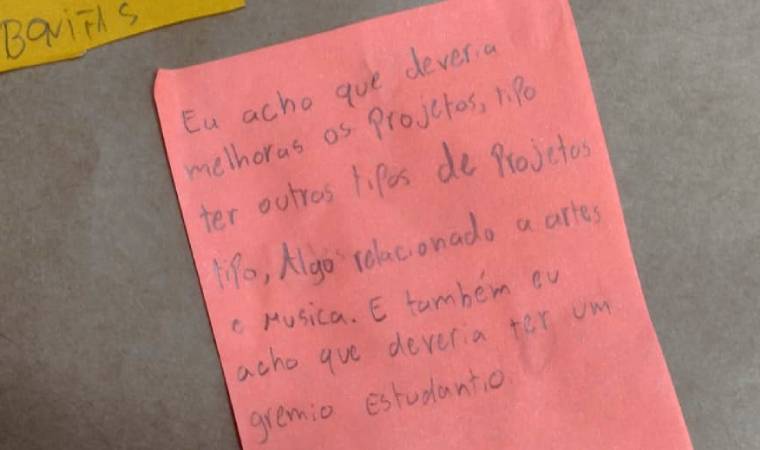 BONITAS
Eu acho que deveria
melhoras os Projetos, tipo
ter outros tipos de Projetos
tipo, Algo relacionado a artes
e Musica. E também eu
acho que deveria ter um
gremio Estudantio.